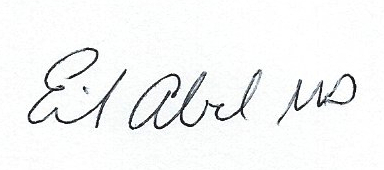 Eil Abel MD